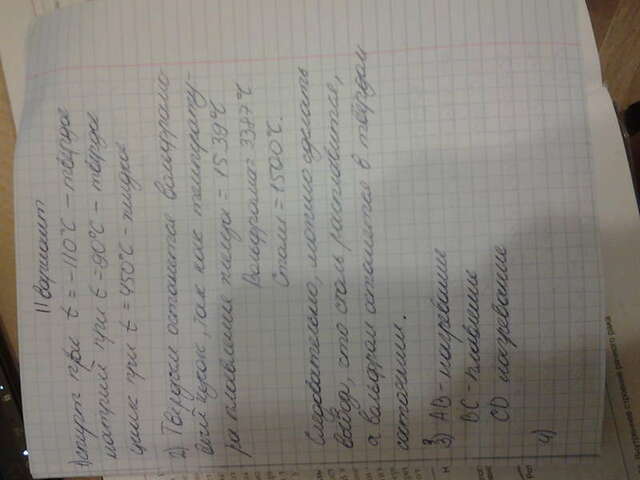 II вариант
1) спирт при t = -110°C - твёрдое
натрий при t = 90°C - твёрдое
цинк при t = 450°C - жидкое
2) Твёрдым останется вольфрамо-
вый кусок, так как температу-
ра плавления железа = 1539°C
Вольфрама = 3387°C
Стали = 1500°C.
Следовательно, можно сделать
вывод, что сталь расплавится,
а вольфрам останется в твёрдом
состоянии.
3) AB - нагревание
BC - плавление
CD нагревание
4)
внутреннее строение речного рака